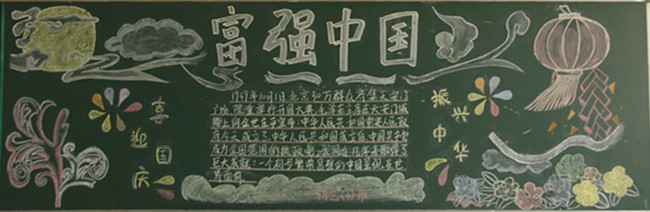 富强中国
喜迎国庆
1949年10月1日北京30万群众齐集天安门
广场隆重举行开国大典毛泽东主席在天安门城
楼上向全世界宣布中华人民共和国中央人民政
府今天成立了中华人民共和国成立后中国共产党
巨大成就一个初步繁荣昌盛的中国呈现在世
界面前
振兴中华